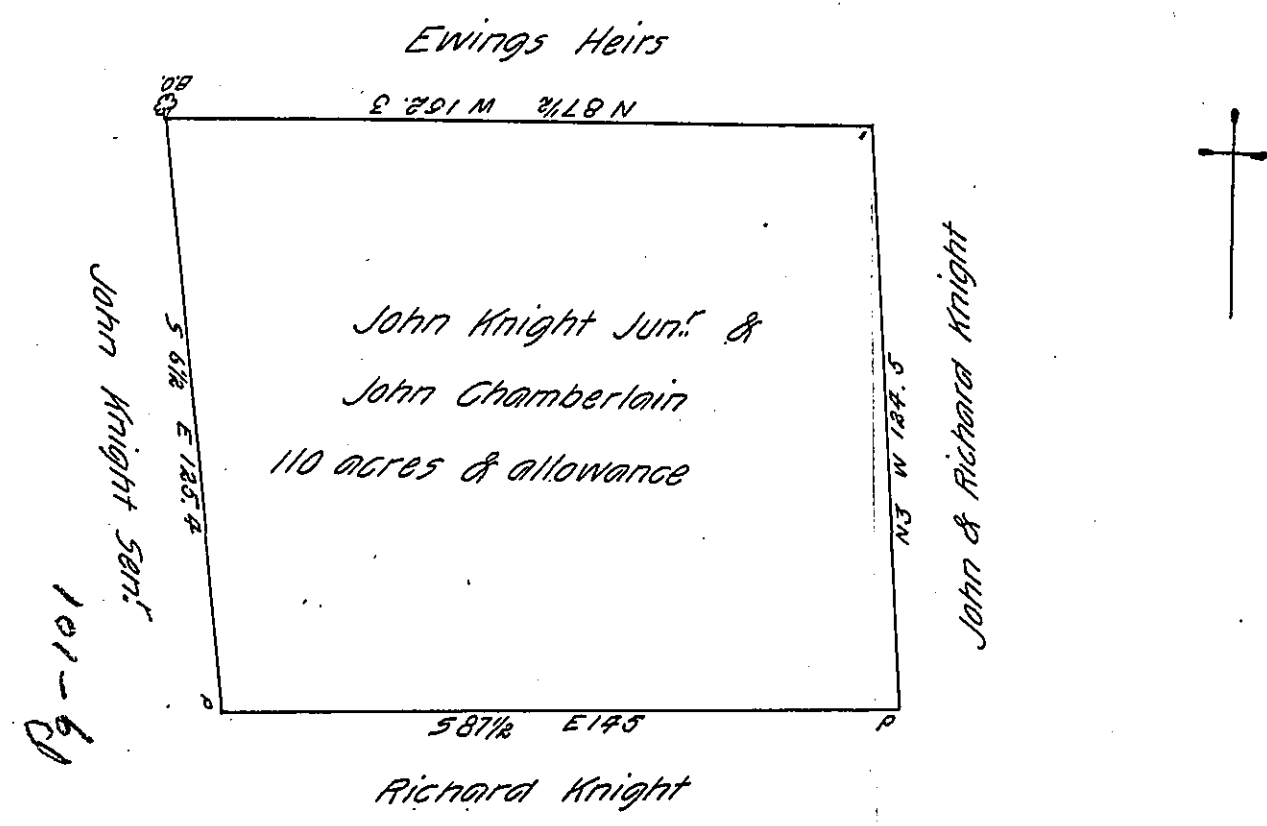 Ewings Heirs
B.O.
N 87½ W 152.3
John Knight Sen.r
S 6½ E 125.4
John Knight Jun.r &
John Chamberlain
110 acres & allowance
N3 W 124.5
John & Richard Knight
P
P
S 87½ E 145
Richard Knight
101-6